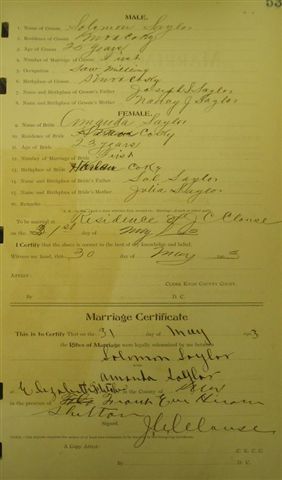 53
MALE.
1. Name of Groom Solomon Saylor
2. Residence of Groom Knox Co Ky
3. Age of Groom 20 years
4. Number of Marriage of Groom First
5. Occupation Saw Milling
6. Birthplace of Groom Knox Co Ky
7. Name and Birthplace of Groom's Father Joseph S. Saylor
8. Name and Birthplace of Groom's Mother Nancy J Saylor
FEMALE.
9. Name of Bride Amanda Saylor
10. Residence of Bride Co Ky
11. Age of Bride 23 years
12. Number of Marriage of Bride First
13. Birthplace of Bride Harlan Co Ky
14. Name and Birthplace of Bride's Father Sol Saylor
15. Name and Birthplace of Bride's Mother Julia Saylor
16. Remarks
To be married at Residence of J C Clouse
on the 31st day of May
I Certify that the above is correct to the best of my knowledge and belief.
Witness my hand, this 30 day of May
Attest:
CLERK KNOX COUNTY COURT.
By D. C.
Marriage Certificate
This is to Certify That on the 31 day of May 3
the Rites of Marriage were legally solemnized by me between
Solomon Saylor
and
Amanda Saylor
in the County of Knox
in the presence of Hiram
Shelton
Signed, J C Clouse
A Copy Attest